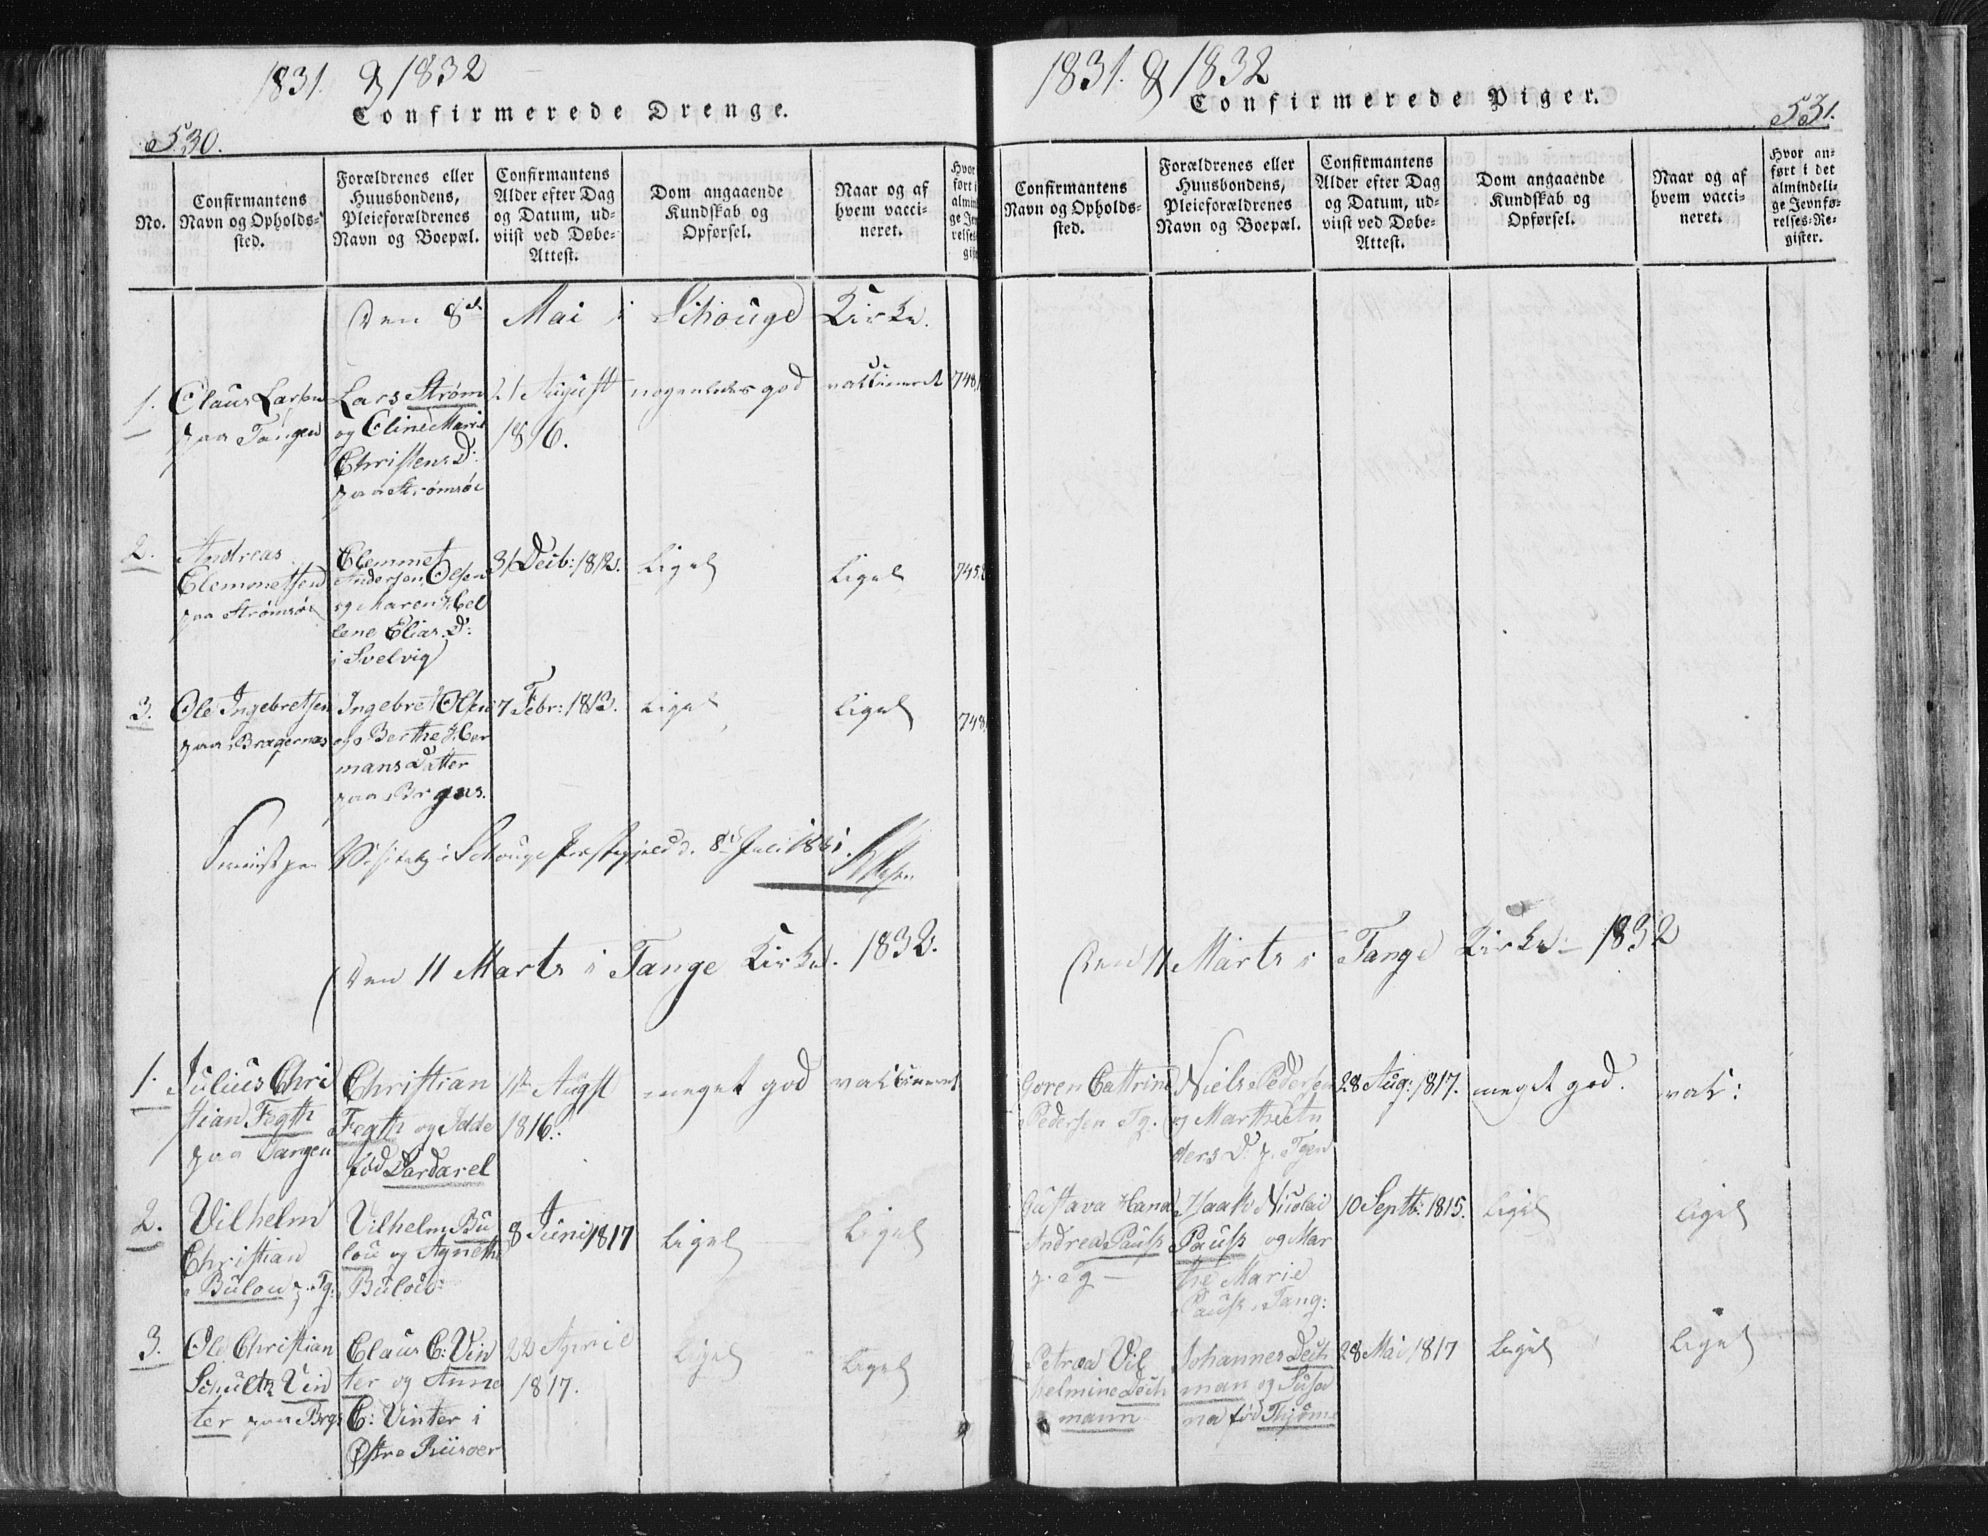 1831 & 1832
Confirmerede Drenge.
530.
No.
Confirmantens
Navn og Opholds-
sted.
Forældrenes eller
Huusbondens,
Pleieforældrenes
Navn og Boepæl.
Confirmantens
Alder efter Dag
og Datum, ud-
viist ved Døbe-
Attest.
Dom angaaende
Kundskab og
Opførsel.
Naar og af
hvem vacci-
neret.
Den 8de Mai i Schouge Kirke.
1.
Claus Larsen
paa Tangen
Lars Strøm
og Eline Marie
Christens D:
paa Strømsøe
21 August
1816.
nogenledes god
vakcineret
2.
Andreas
Clemmetsen
paa Strømsøe
Clemmet
Andersen Olsen
og Maren Hel
lene Elias D:
i Svelvig
31 Decb: 1812.
Ligel
Ligel
3.
Ole Ingebretsen
paa Bragernæs
Ingebret Olsen
og Berthe Her
mans Datter
paa Brgnes.
7 Febr: 1813.
Ligel
Ligel
748
Visitatz i Schouge 8de Juli 1831.
Den 11 Marts i Tange Kirke. 1832.
1.
Julius Chri
stian Fegth
paa Tangen
Christian
Fegth og Idde
fød Dardarel
1ste Augst
1816.
meget god
vakcineret
2.
Vilhelm
Christian
Bülou p. Tg:
Vilhelm Bü
lou og Agnethe
Bülou
8 Juni 1817
Ligel
Ligel
3.
Ole Christian
Schultz Vin
ter paa Brgs
Claus C: Vin
ter og Anne
C: Vinter i
Østre Riisøer
22 April
1817.
Ligel
Ligel
1831. & 1832
Confirmerede Piger.
531.
Confirmantens
Navn og Opholds-
sted.
Forældrenes eller
Huusbondens,
Pleieforældrenes
Navn og Boepæl.
Confirmantens
Alder efter Dag
og Datum, ud-
viist ved Døbe-
Attest.
Dom angaaende
Kundskab og
Opførsel.
Naar og af
hvem vacci-
neret.
Hvor an-
ført i det
almindeli-
ge Jevnfø-
relses-Re-
gister.
Den 11 Marts i Tange Kirke 1832
Goren Cattrine
Pedersen Tg.
Niels Pedersen
og Marthe An
ders D. p. Tgen
28 Aug: 1817.
meget god.
vak:
Gustava Hana
Andrea Pauss
p. Tg
Haask Nicolai
Pauss og Mar
the Marie
Pauss, Tang:
10 Septb: 1815.
Ligel
Ligel
Petrea Vil
helmine Deich
mann
Johannes Deich
man og Susa
na fød Thjøme
28 Mai 1817
Ligel
Ligel